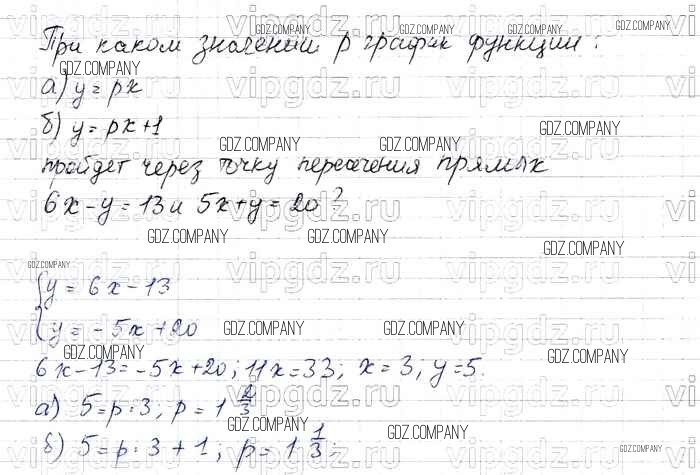 При каком значении p график функции:
а) y = px
б) y = px + 1
пройдет через точку пересечения прямых
6x - y = 13 и 5x + y = 20?
{ y = 6x - 13
{ y = -5x + 20
6x - 13 = -5x + 20; 11x = 33; x = 3; y = 5.
а) 5 = p · 3; p = 1 2/3
б) 5 = p · 3 + 1; p = 1 1/3;
GDZ.COMPANY
vipgdz.ru